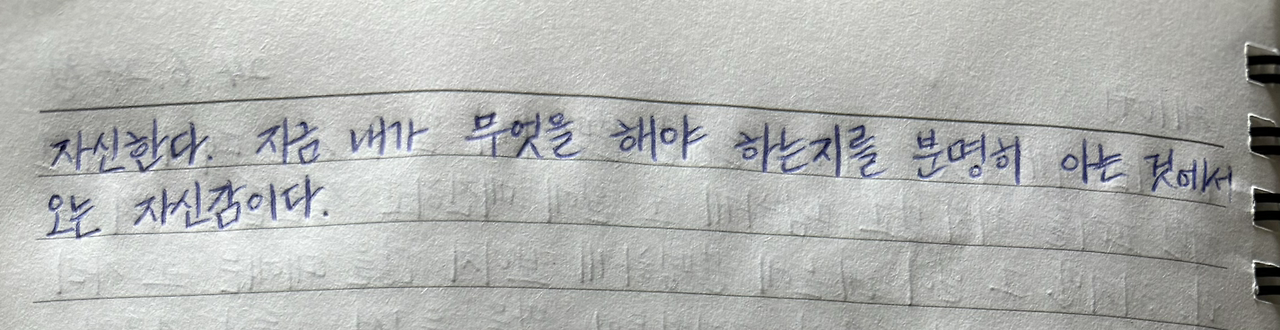 자신한다. 지금 내가 무엇을 해야 하는지를 분명히 아는 것에서
오는 자신감이다.